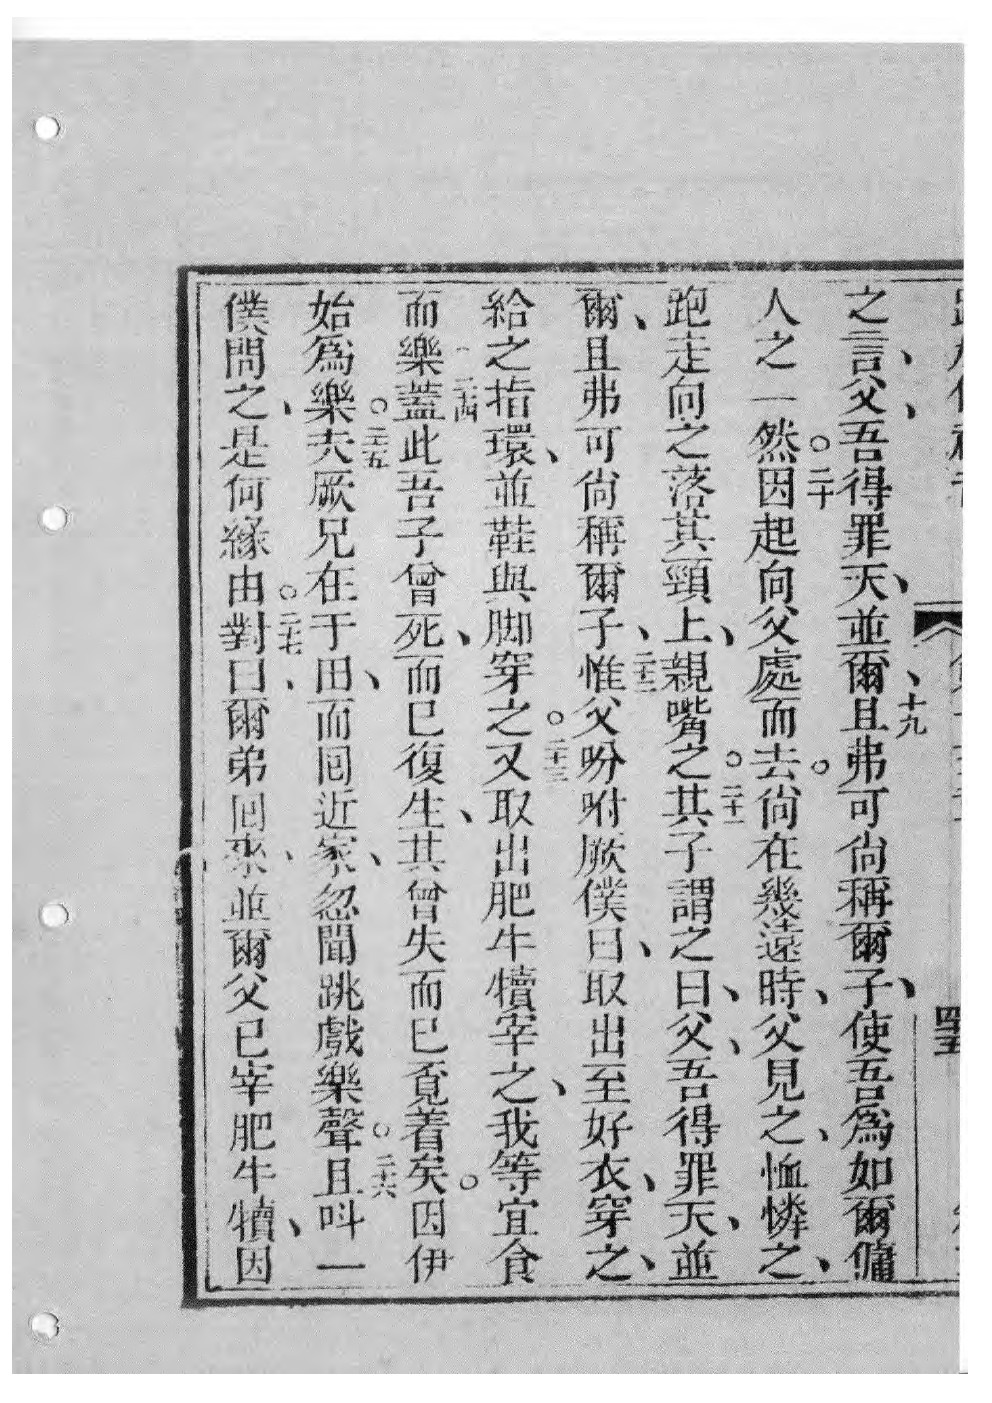 之言、父、吾得罪天、並爾、十九且弗可尙稱爾子、使吾爲如爾傭
人之一然。二十因起向父處而去。尙在幾遠時、父見之、恤憐之、
跑走向之落其頸上、親嘴之。二十一其子謂之曰、父、吾得罪天、並
爾、且弗可尙稱爾子、二十二惟父吩咐厥僕曰、取出至好衣、穿之、
給之指環、並鞋與脚穿之。二十三又取出肥牛犢宰之、我等宜食
而樂二十四蓋此吾子曾死、而已復生、其曾失而已覔着矣。因伊
始爲樂。二十五夫厥兄在于田、而囘近家、忽聞跳戲樂聲。二十六且呌一
僕問之、是何緣由。二十七對曰、爾弟囘來、並爾父已宰肥牛犢、因